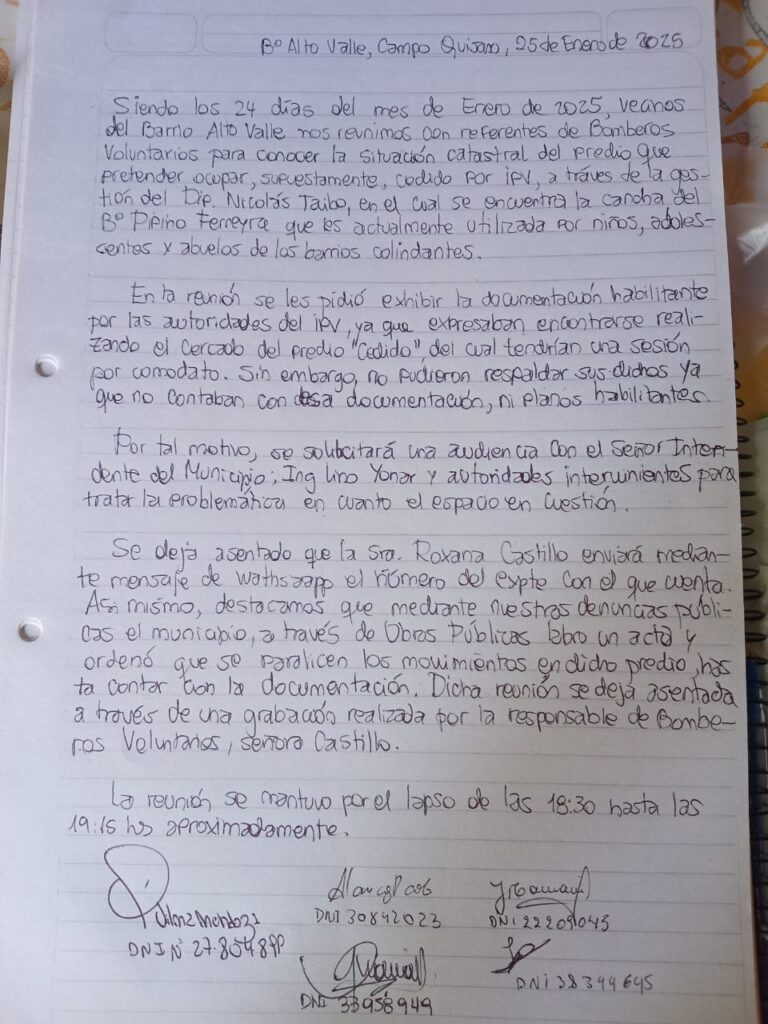 Bº Alto Valle, Campo Quijano, 25 de Enero de 2025
Siendo los 24 días del mes de Enero de 2025, vecinos
del Barrio Alto Valle nos reunimos con referentes de Bomberos
Voluntarios para conocer la situación catastral del predio que
pretender ocupar, supuestamente, cedido por IPV, a través de la ges-
tión del Dip. Nicolás Taibo, en el cual se encuentra la cancha del
Bº Pipino Ferreyra que es actualmente utilizada por niños, adoles-
centes y abuelos de los barrios colindantes.
En la reunión se les pidió exhibir la documentación habilitante
por las autoridades del IPV, ya que expresaban encontrarse reali-
zando el cercado del predio "Cedido", del cual tendrían una sesión
por comodato. Sin embargo, no pudieron respaldar sus dichos ya
que no contaban con esa documentación, ni planos habilitantes.
Por tal motivo, se solicitará una audiencia con el Señor Inten-
dente del Municipio; Ing Lino Yonar y autoridades intervinientes para
tratar la problemática en cuanto el espacio en cuestión.
Se deja asentado que la Sra. Roxana Castillo enviará median-
te mensaje de wathsaapp el número del expte con el que cuenta.
Asi mismo, destacamos que mediante nuestras denuncias públi-
cas el municipio, a través de Obras Públicas labro un acta y
ordenó que se paralicen los movimientos en dicho predio, has
ta contar con la documentación. Dicha reunión se deja asentada
a través de una grabación realizada por la responsable de Bombe-
ros Voluntarios, señora Castillo.
La reunión se mantuvo por el lapso de las 18:30 hasta las
19:15 hs aproximadamente.
Mendoza
DNI Nº
DNI 30842023
DNI 22209045
DNI 33958949
DNI 38394645